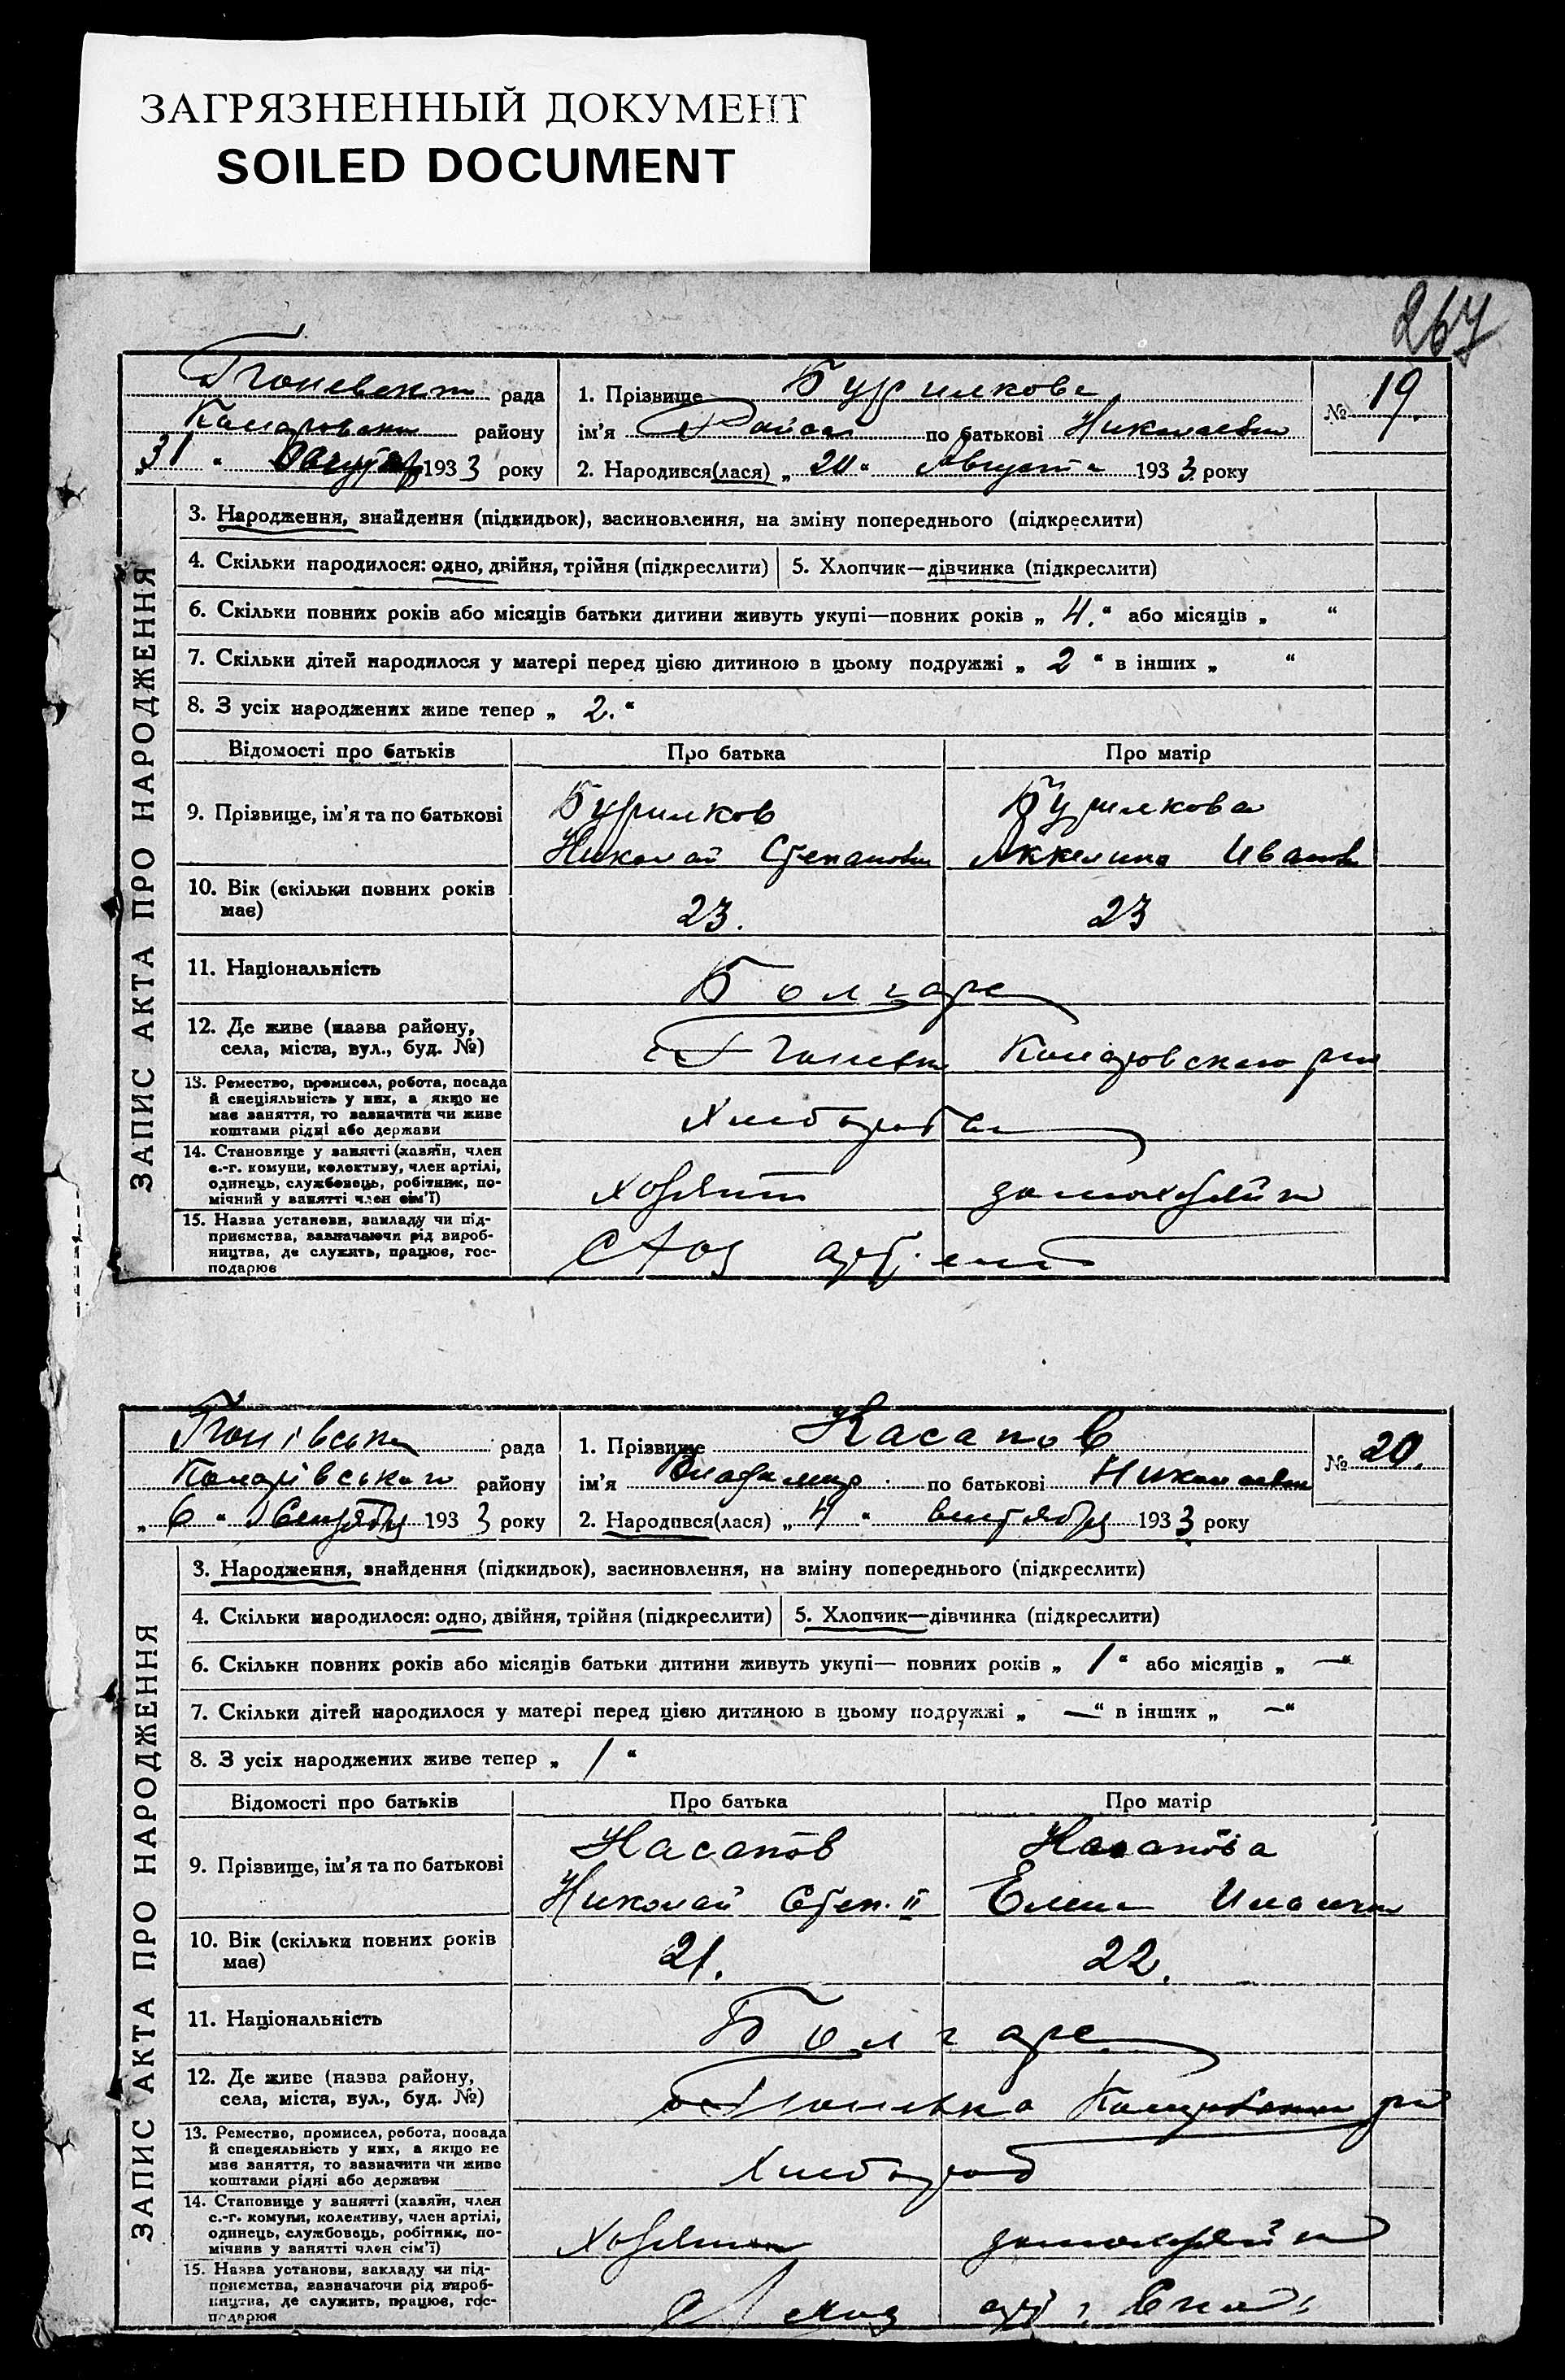 ЗАГРЯЗНЕННЫЙ ДОКУМЕНТ
SOILED DOCUMENT
267
рада
району
"31" 1933 року
1. Прізвище Бурилкова
ім'я Раиса по батькові Николаевн
2. Народився(лася) „20“ Августа 1933 року
№ 19
ЗАПИС АКТА ПРО НАРОДЖЕННЯ
3. Народження, знайдення (підкидьок), засиновлення, на зміну попереднього (підкреслити)
4. Скільки народилося: одно, двійня, трійня (підкреслити)
5. Хлопчик—дівчинка (підкреслити)
6. Скільки повних років або місяців батьки дитини живуть укупі—повних років „4.“ або місяців „ “
7. Скільки дітей народилося у матері перед цією дитиною в цьому подружжі „2“ в інших „ “
8. З усіх народжених живе тепер „2.“
Відомості про батьків
Про батька
Про матір
9. Прізвище, ім'я та по батькові
Бурилков
Николай Степанович
Бурилкова
10. Вік (скільки повних років
має)
23.
23
11. Національність
Болгаре
12. Де живе (назва району,
села, міста, вул., буд. №)
13. Ремество, промисел, робота, посада
й спеціяльність у них, а якщо не
має заняття, то зазначити чи живе
коштами рідні або держави
14. Становище у занятті (хазяїн, член
с.-г. комуни, колективу, член артілі,
одинець, службовець, робітник, по-
мічний у занятті член сім'ї)
15. Назва установи, закладу чи під-
приємства, зазначаючи рід вироб-
ництва, де служить, працює, гос-
подарює
рада
району
„6“ Сентября 1933 року
1. Прізвище Касапов
ім'я Владимир по батькові Николаевич
2. Народився(лася) „4“ 1933 року
№ 20.
ЗАПИС АКТА ПРО НАРОДЖЕННЯ
3. Народження, знайдення (підкидьок), засиновлення, на зміну попереднього (підкреслити)
4. Скільки народилося: одно, двійня, трійня (підкреслити)
5. Хлопчик—дівчинка (підкреслити)
6. Скільки повних років або місяців батьки дитини живуть укупі— повних років „1“ або місяців „—“
7. Скільки дітей народилося у матері перед цією дитиною в цьому подружжі „—“ в інших „—“
8. З усіх народжених живе тепер „1“
Відомості про батьків
Про батька
Про матір
9. Прізвище, ім'я та по батькові
Касапов
Николай Степ. II
Касапова
Елена
10. Вік (скільки повних років
має)
21.
22.
11. Національність
Болгаре
12. Де живе (назва району,
села, міста, вул., буд. №)
13. Ремество, промисел, робота, посада
й спецеяльність у них, а якщо не
має заняття, то зазначити чи живе
коштами рідні або держави
14. Становище у занятті (хазяїн, член
с.-г. комуни, колективу, член артілі,
одинець, службовець, робітник, по-
мічнив у занятті член сім'ї)
15. Назва установи, закладу чи під-
приємства, зазначаючи рід вироб-
ництва, де служить, працює, гос-
подарює